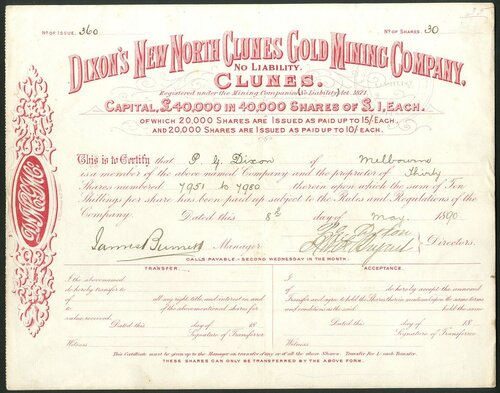 No OF ISSUE 360 No OF SHARES 30
DIXON'S NEW NORTH CLUNES GOLD MINING COMPANY,
NO LIABILITY.
CLUNES.
Registered under the Mining Companies (No Liability) Act. 1871.
CAPITAL, £40,000 IN 40,000 SHARES OF £1, EACH.
OF WHICH 20,000 SHARES ARE ISSUED AS PAID UP TO 15/- EACH.
AND 20,000 SHARES ARE ISSUED AS PAID UP TO 10/- EACH.
This is to Certify that P. G. Dixon of Melbourne
is a member of the above named Company and the proprietor of Thirty
Shares numbered 7951 to 7980 therein upon which the sum of Ten
Shillings per share has been paid up subject to the Rules and Regulations of the
Company. Dated this 8th day of May 1890
James Burnett Manager Directors.
CALLS PAYABLE - SECOND WEDNESDAY IN THE MONTH.
TRANSFER.
I the abovenamed
do hereby transfer to
of all my right, title and interest in and
to of the abovementioned shares for
value received.
Dated this day of 18
Witness Signature of Transferror
ACCEPTANCE.
I
of do hereby accept the annexed
Transfer and agree to hold the Shares therein mentioned upon the same terms
and conditions as the said held the same
Dated this day of 18
Signature of Transferree
Witness
This Certificate must be given up to the Manager on transfer of any or of all the above Shares. Transfer Fee 1/- each Transfer.
THESE SHARES CAN ONLY BE TRANSFERRED BY THE ABOVE FORM.